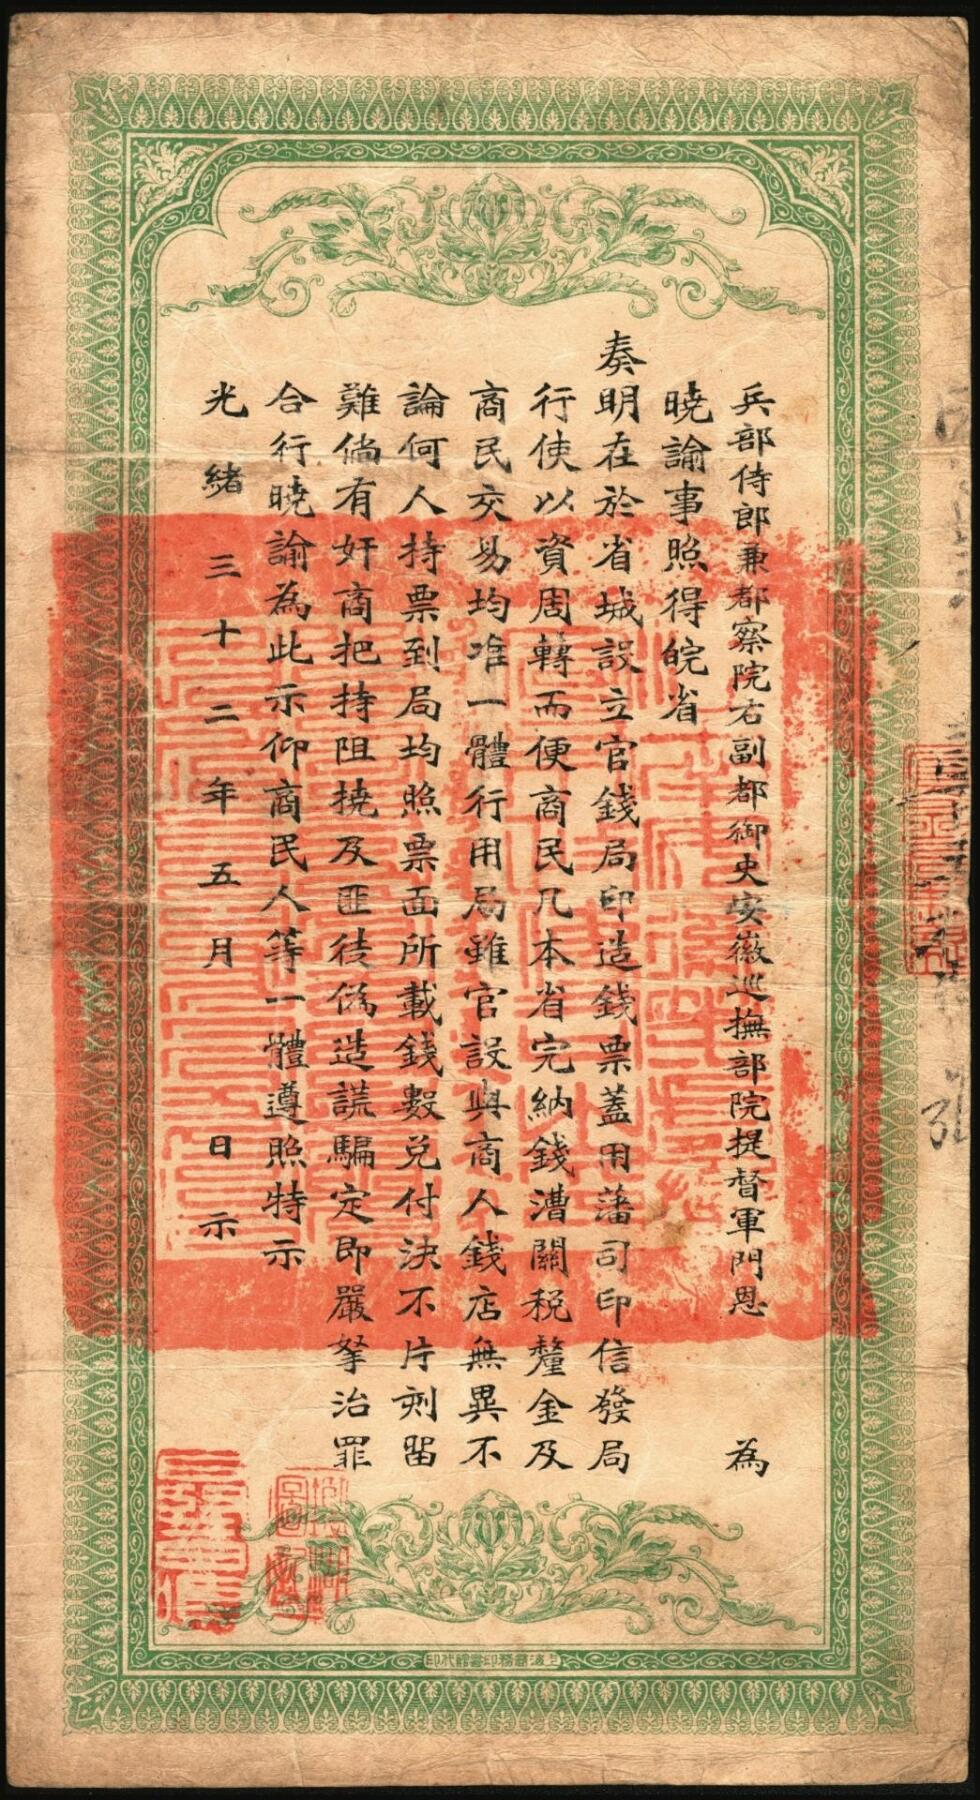 兵部侍郎兼都察院右副都御史安徽巡撫部院提督軍門恩　為
曉諭事照得皖省
奏明在於省城設立官錢局印造錢票蓋用藩司印信發局
行使以資周轉而便商民凡本省完納錢漕關稅釐金及
商民交易均准一體行用局雖官設與商人錢店無異不
論何人持票到局均照票面所載錢數兌付決不片刻留
難倘有奸商把持阻撓及匪徒偽造誆騙定即嚴拏治罪
合行曉諭為此示仰商民人等一體遵照特示
光緒三十二年五月　日示
上海商務印書館代印